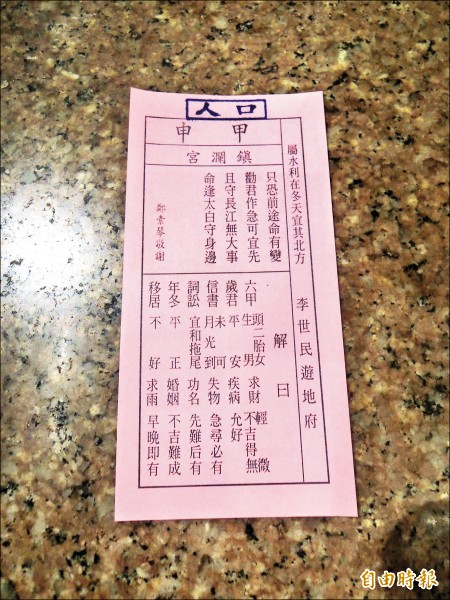 人口
甲申
鎮瀾宮
屬水利在冬天宜其北方 李世民遊地府
只恐前途命有變
勸君作急可宜先
且守長江無大事
命逢太白守身邊
鄭素琴敬謝
解曰
六甲 頭二胎女生男 求財 輕微不吉得無
歲君 平安 疾病 允好
信書 未可月光到 失物 急尋必有
詞訟 宜和拖尾 功名 先難后有
年冬 平正 婚姻 不吉難成
移居 不好 求雨 早晚即有
自由時報